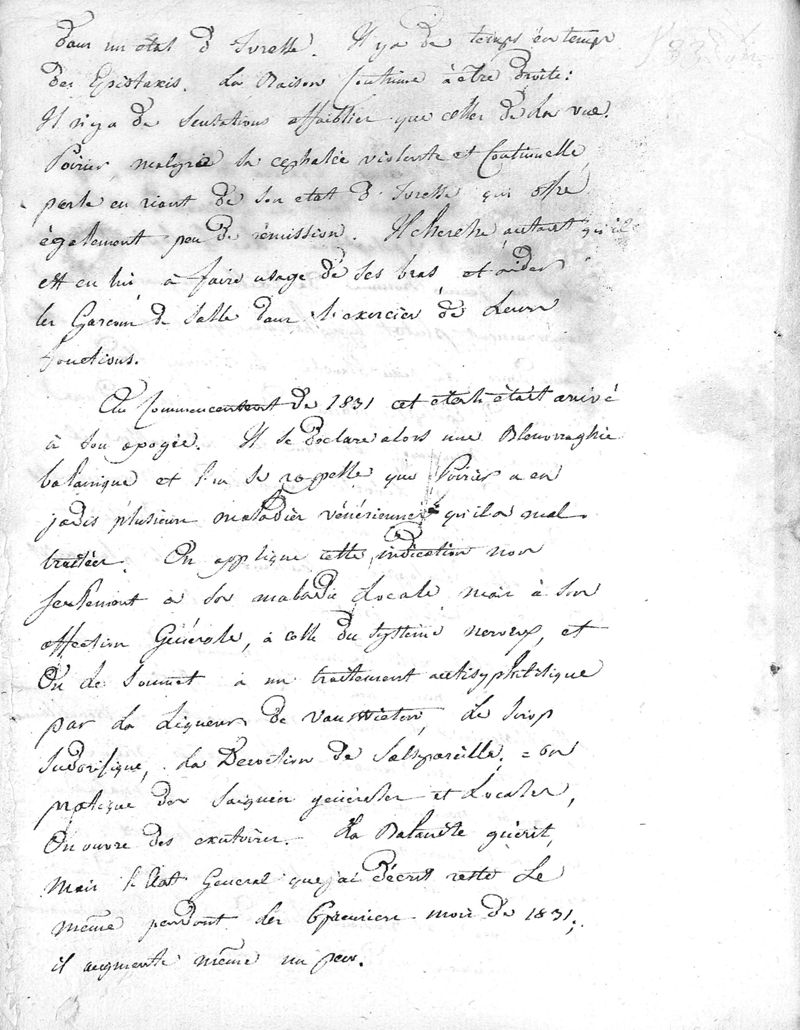 dans un état d'Ivresse. Il y a de temps en temps
des Epistaxis. La Raison Continue à être droite:
Il n'y a de Sensations affaiblies que celles de la vue.
Poirier malgrée sa cephalée violente et Continuelle,
parle en riant de son etat d'Ivresse qui offre
également peu de rémission. Il cherche autant qu'il
est en lui à faire usage de ses bras et à aider
les Garcons de Salle dans l'exercice de Leurs
fonctions.
Au Commencement de 1831 cet état était arrivé
à son apogée. Il se déclare alors une Blennorraghie
balanique et l'on se rappelle que Poirier a eu
jadis plusieurs maladies vénériennes qu'il a mal
traitées. On applique cette indication non
seulement à Son maladie Locale mais à son
affection Générale, à celle du système nerveux, et
On le Soumet à un traitement antisyphilitique
par La Liqueur de Vanswieten, Le Sirop
Sudorifique, La Decoction de Salsepareille; = on
pratique des Saignées générales et Locales,
On ouvre des exutoires. La Balanite guérit,
mais l'Etat General que j'ai décrit reste Le
même pendant les 6 premiers mois de 1831;
il augmente même un peu.